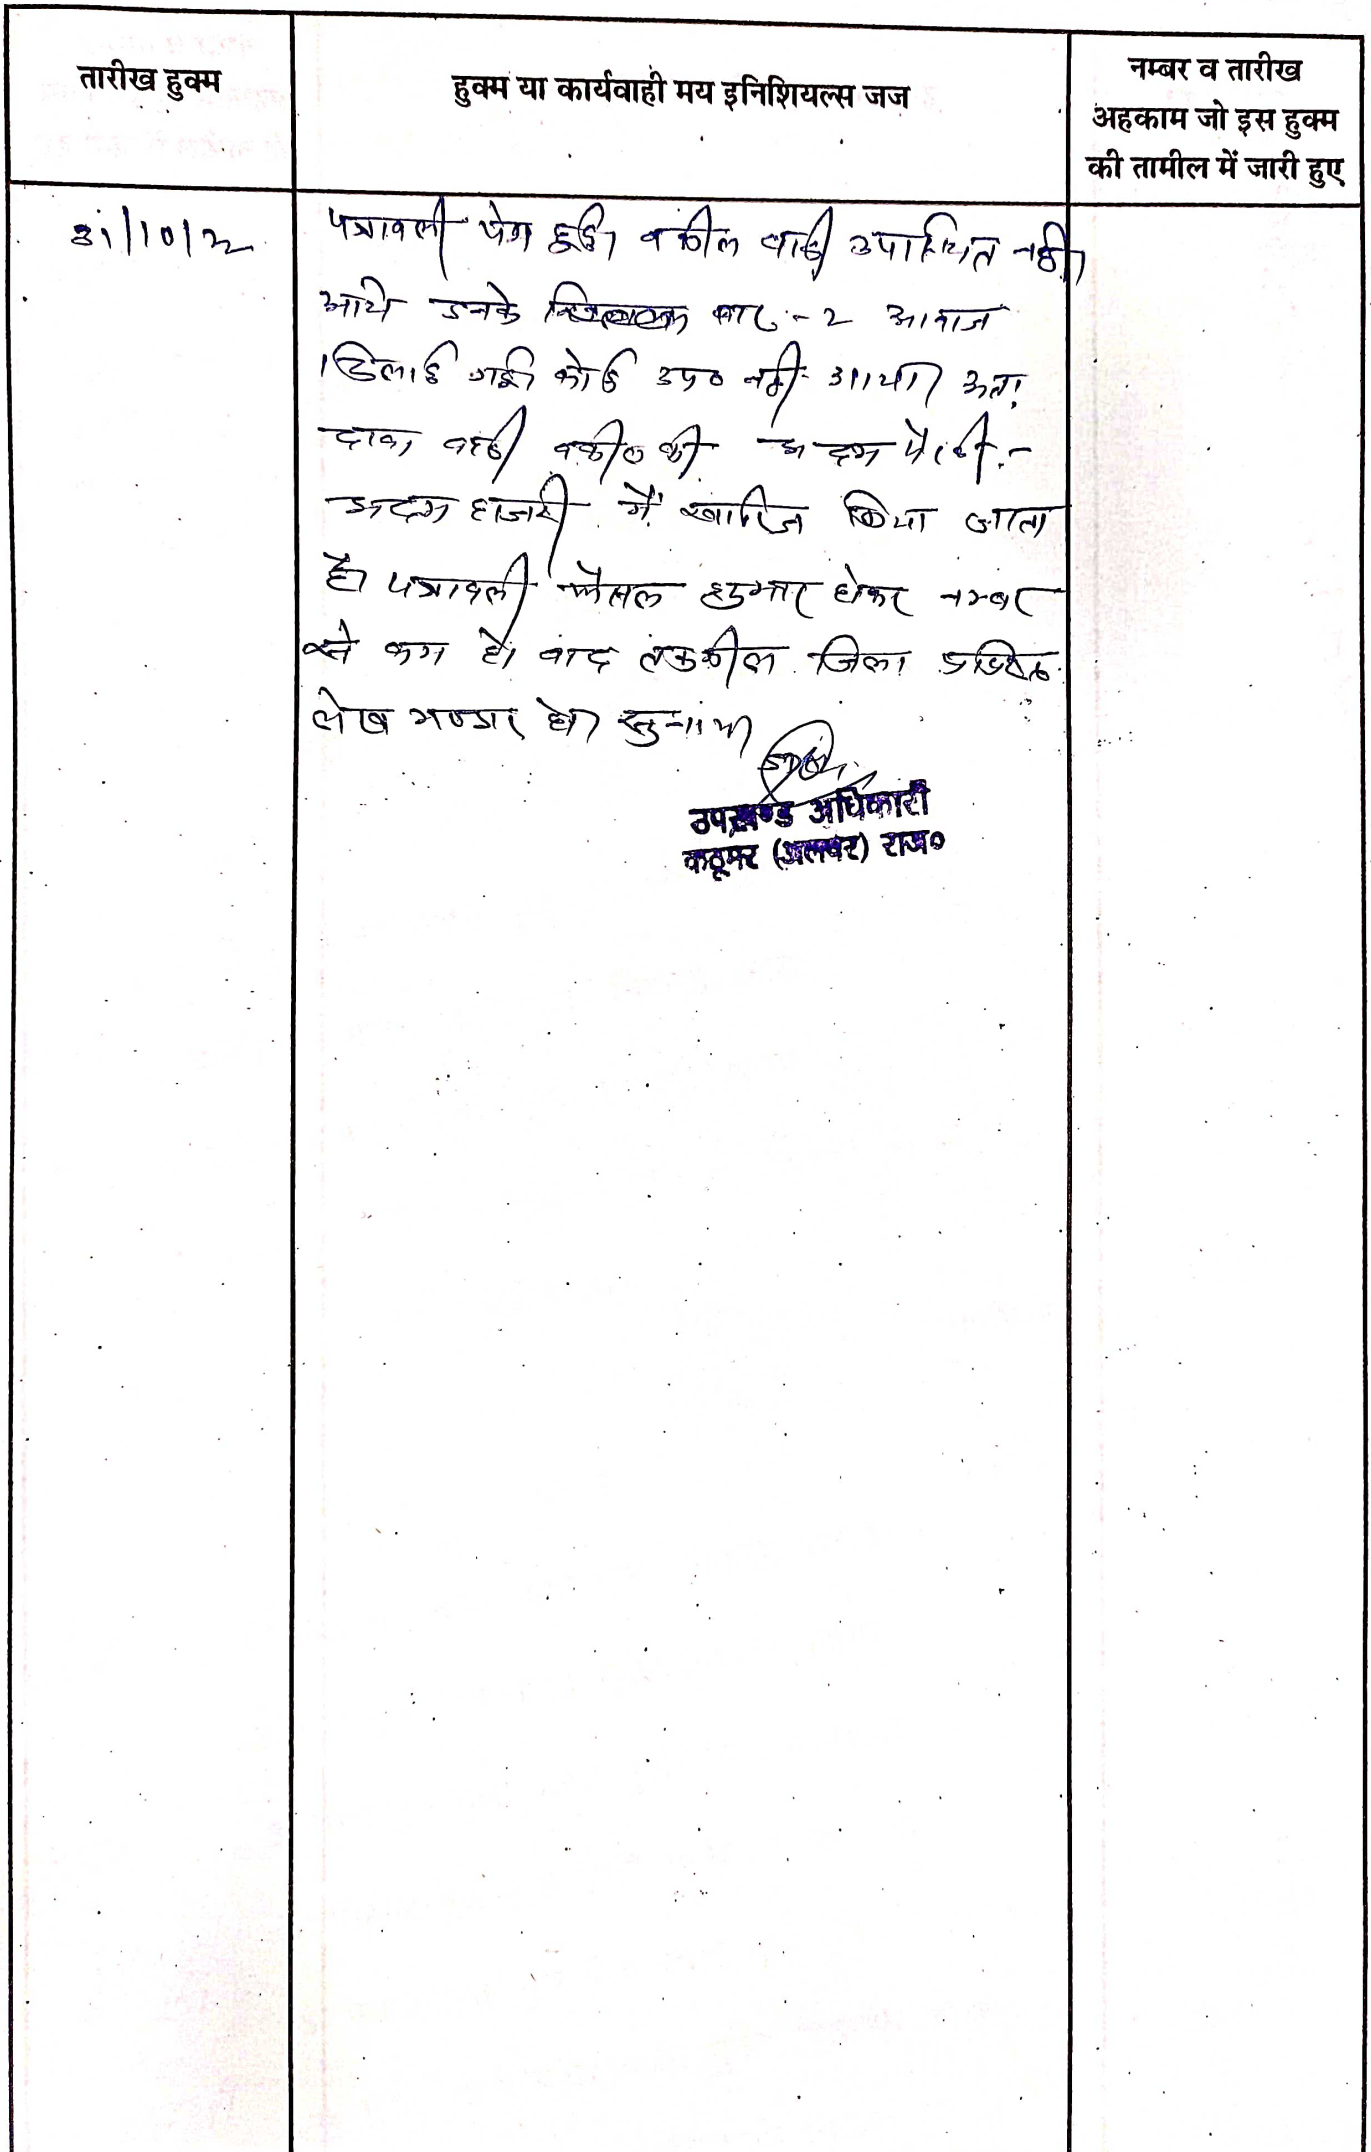 तारीख हुक्म
हुक्म या कार्यवाही मय इनिशियल्स जज
नम्बर व तारीख
अहकाम जो इस हुक्म
की तामील में जारी हुए
31/10/22
पत्रावली पेश हुई। वकील वादी उपस्थित नहीं
आये उनके बार-2 आवाज
दिलाई गई। कोई उप० नहीं आया। अतः
दावा वादी वकील की अदम पैरवी-
अदम हाजरी में खारिज किया जाता
है। पत्रावली फैसल शुमार होकर नम्बर
से कम हो। बाद तकमील जिला अभि
लेख भण्डार हो। सुनाया
उपखण्ड अधिकारी
कठूमर (अलवर) राज०